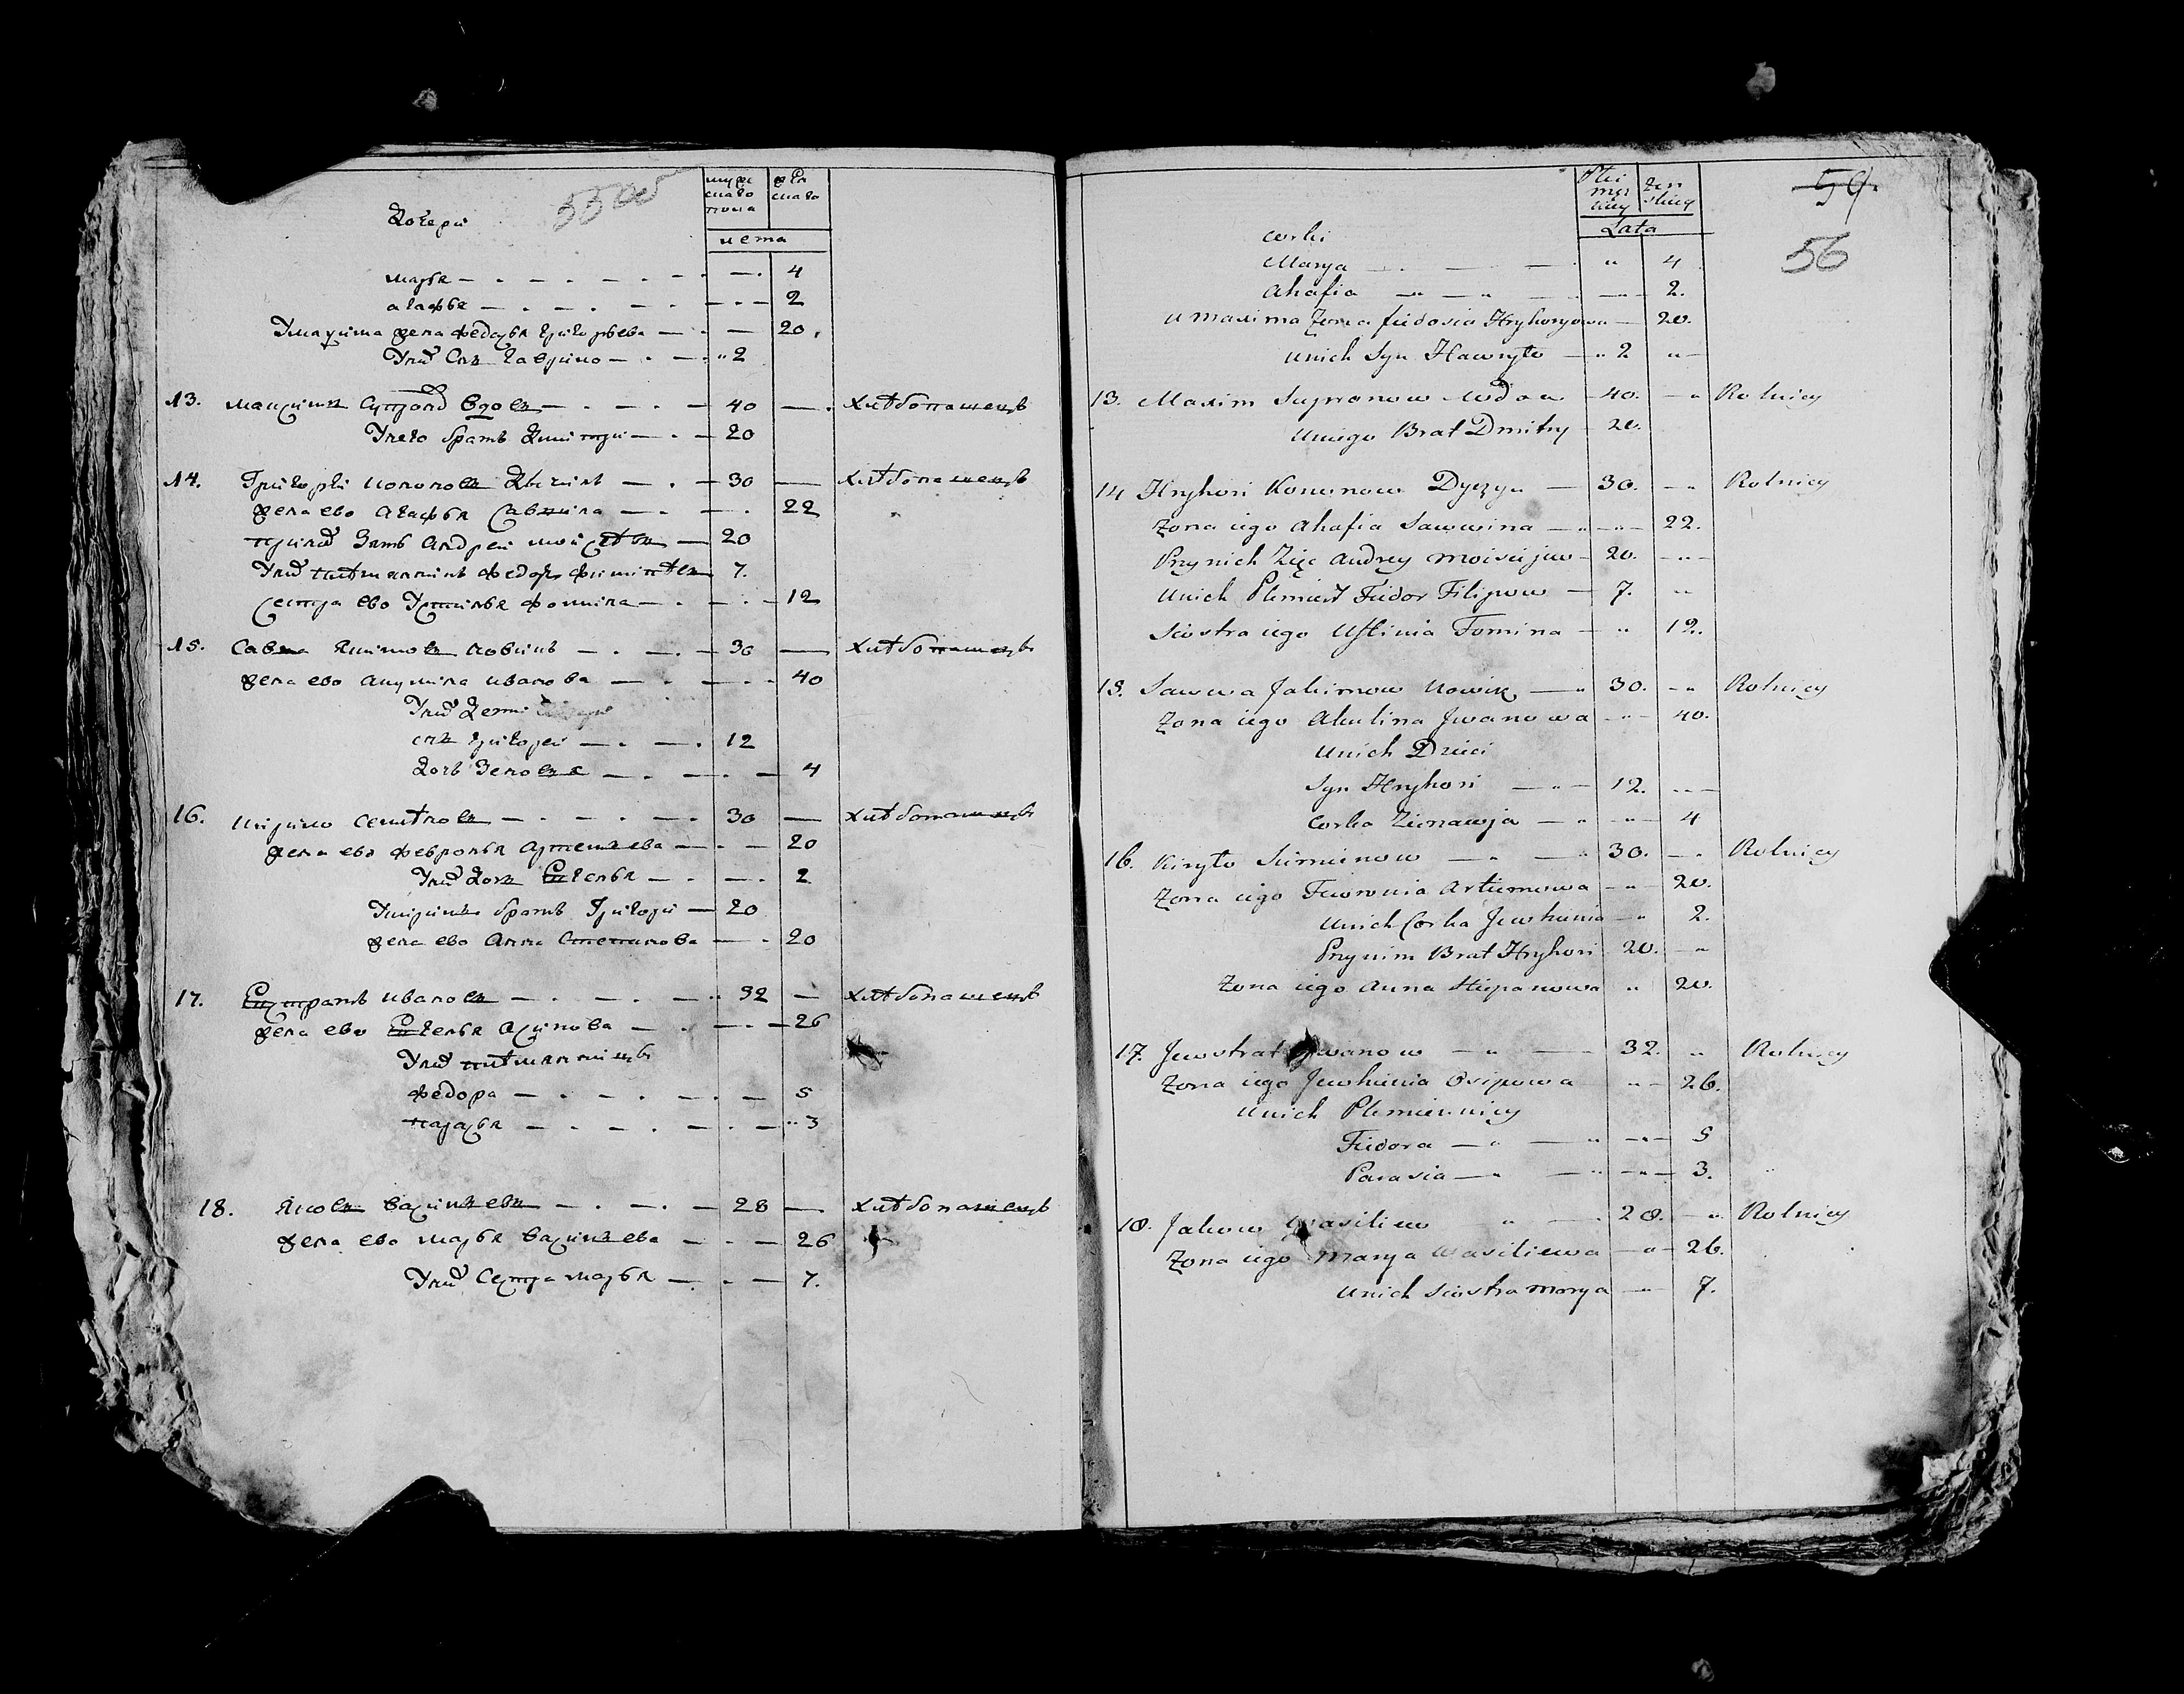 55об
мужеска пола
женска
лета
Дочери
марья 4
агафья 2
У максима жена федосья григорьева 20
У них Сынъ гаврило 2
13. максимъ Супроновъ вдовъ 40 хлебопашецъ
У него братъ Дмитрий 20
14. Григорий Кононовъ Дычинъ 30 хлебопашецъ
жена ево агафья Саввина 22
при них Зять андрей моисеевъ 20
У них племянникъ федоръ филиповъ 7.
Сестра ево Устинья фомина 12
15. Савва Якимовъ новикъ 30 хлебопашецъ
жена ево акулина иванова 40
У них Дети
сынъ григорей 12
Дочь Зеновья 4
16. Кирило Семеновъ 30 хлебопашецъ
жена ево февронья артемьева 20
У них Дочь Евгенья 2
У кирилы братъ Григорий 20
жена ево анна Степанова 20
17. Евстратъ ивановъ 32 хлебопашецъ
жена ево Евгенья осипова 26
У них племянницы
федора 5
парасья 3
18. Яковъ васильевъ 28 хлебопашецъ
жена ево марья васильева 26
У них Сестра марья 7.
59.
56
Płci męs kiey
żen skiey
Lata
Corki
Marya " 4
Ahafia 2.
U Maxima Żona Fiedosia Hryhoryowa 20.
Unich Syn Hawryło 2 "
13. Maxim Supronow Wdow 40. Rolnicy
Uniego Brat Dmitry 20.
14 Hryhori Kononow Dyczyn 30. Rolnicy
Żona iego Ahafia Sawwina 22.
Przynich Zięc Andrey Moisiejew 20.
Unich Plemient Fiedor Filipow 7. "
Siostra iego Ustinia Fomina " 12.
15. Sawwa Jakimow Nowik 30. Rolnicy
Żona iego Akulina Jwanowa 40.
Unich Dzieci
Syn Hryhori 12.
Corka Zienowja 4
16. Kiryło Siemienow 30. Rolnicy
Żona iego Fiewronia Artiemowa 20.
Unich Corka Jewhenia 2.
Przynim Brat Hryhori 20.
Żona iego Anna Stiepanowa " 20.
17. Jewstrat Jwanow 32. " Rolnicy
Żona iego Jewhienia Osipowa " 26.
Unich Plemiennicy
Fiedora 5
Parasia 3.
18. Jakow Wasiliew 28. Rolnicy
Żona iego Marya Wasiliewa 26.
Unich Siostra Marya 7.